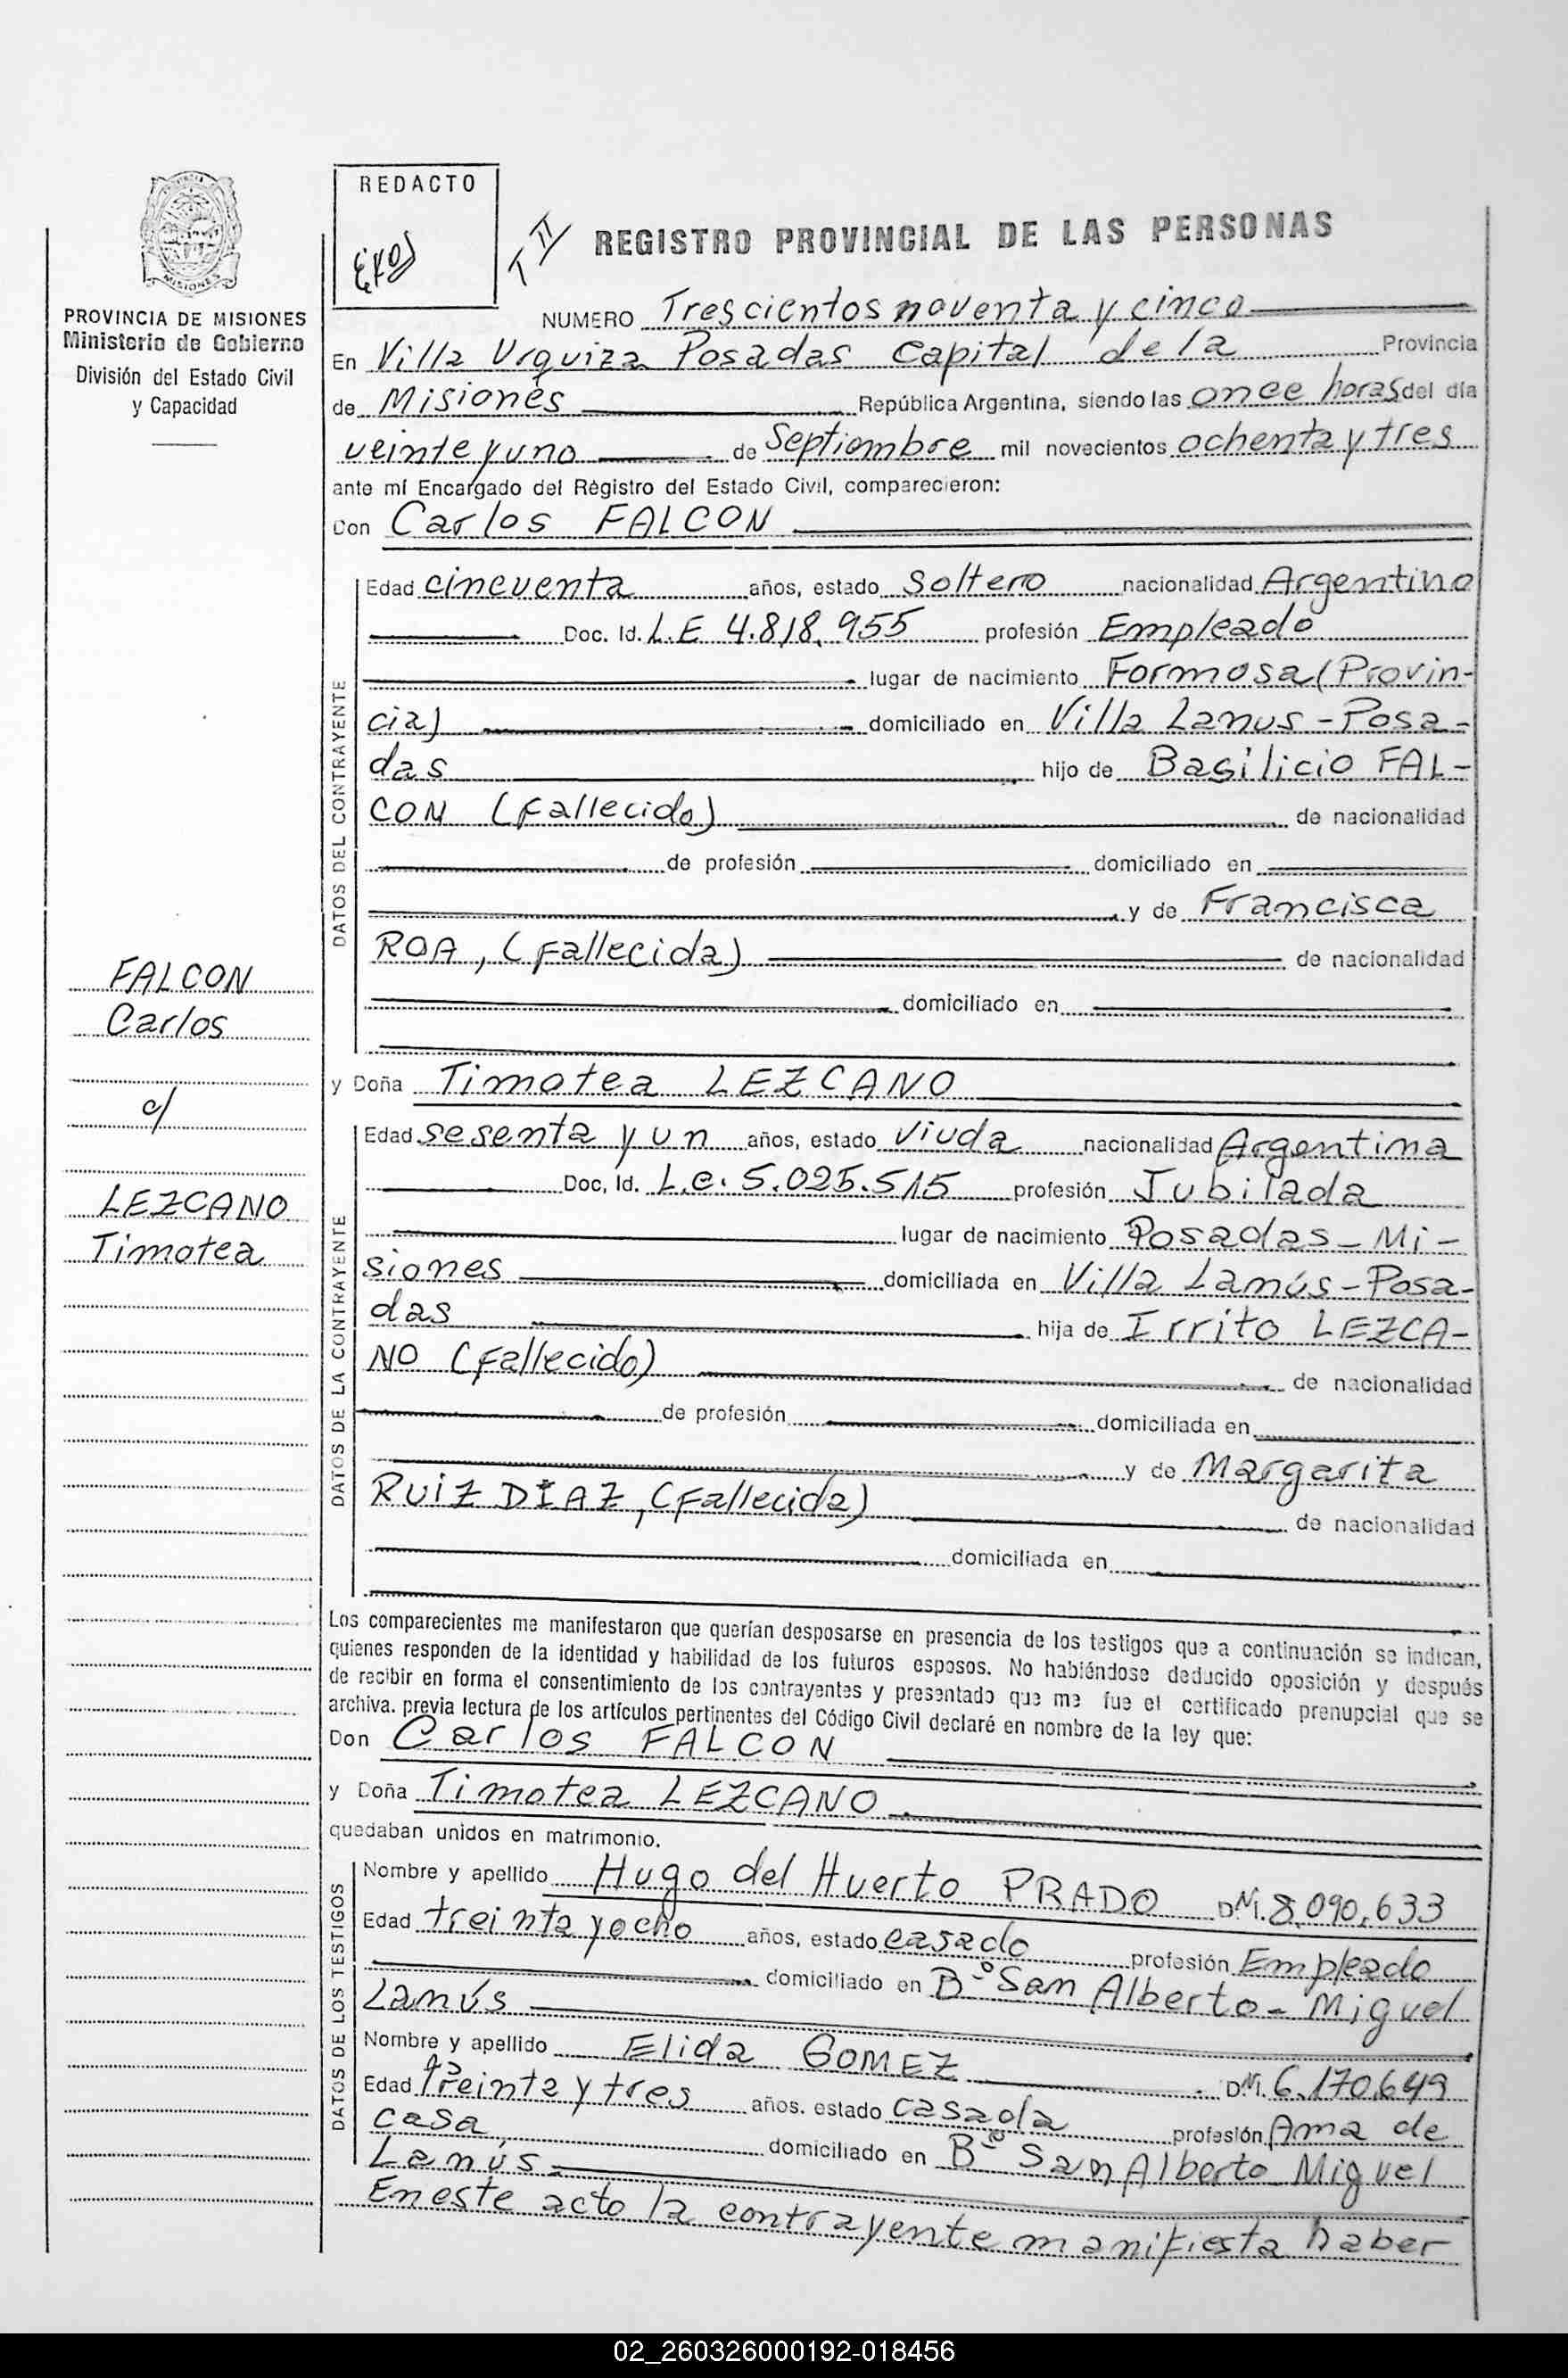 REDACTO
T II
REGISTRO PROVINCIAL DE LAS PERSONAS
MISIONES
PROVINCIA DE MISIONES
Ministerio de Gobierno
División del Estado Civil
y Capacidad
NUMERO Trescientos noventa y cinco
En Villa Urquiza Posadas Capital de la Provincia
de Misiones República Argentina, siendo las once horas del día
veinte y uno de Septiembre mil novecientos ochenta y tres
ante mí Encargado del Régistro del Estado Civil, comparecieron:
Don Carlos FALCON
DATOS DEL CONTRAYENTE
Edad cincuenta años, estado Soltero nacionalidad Argentino
Doc. Id. L.E 4.818.955 profesión Empleado
lugar de nacimiento Formosa (Provin-
cia) domiciliado en Villa Lanus - Posa-
das hijo de Basilicio FAL-
CON (Fallecido) de nacionalidad
de profesión domiciliado en
y de Francisca
ROA, (Fallecida) de nacionalidad
domiciliado en
FALCON
Carlos
c/
LEZCANO
Timotea
y Doña Timotea LEZCANO
DATOS DE LA CONTRAYENTE
Edad sesenta y un años, estado Viuda nacionalidad Argentina
Doc, Id. L.C. 5.025.515 profesión Jubilada
lugar de nacimiento Posadas - Mi-
siones domiciliada en Villa Lanús - Posa-
das hija de Irrito LEZCA-
NO (Fallecido) de nacionalidad
de profesión domiciliada en
y de Margarita
RUIZ DIAZ, (Fallecida) de nacionalidad
domiciliada en
Los comparecientes me manifestaron que querían desposarse en presencia de los testigos que a continuación se indican,
quienes responden de la identidad y habilidad de los futuros esposos. No habiéndose deducido oposición y después
de recibir en forma el consentimiento de los contrayentes y presentado que me fue el certificado prenupcial que se
archiva. previa lectura de los artículos pertinentes del Código Civil declaré en nombre de la ley que:
Don Carlos FALCON
y Doña Timotea LEZCANO.
quedaban unidos en matrimonio.
DATOS DE LOS TESTIGOS
Nombre y apellido Hugo del Huerto PRADO DNI. 8.090.633
Edad treinta y ocho años, estado casado profesión Empleado
domiciliado en Bº San Alberto - Miguel
Lanús
Nombre y apellido Elida GOMEZ DNI. 6.170.649
Edad treinta y tres años. estado casada profesión Ama de
casa, domiciliado en Bº San Alberto Miguel
Lanús.
En este acto la contrayente manifiesta haber
02_260326000192-018456